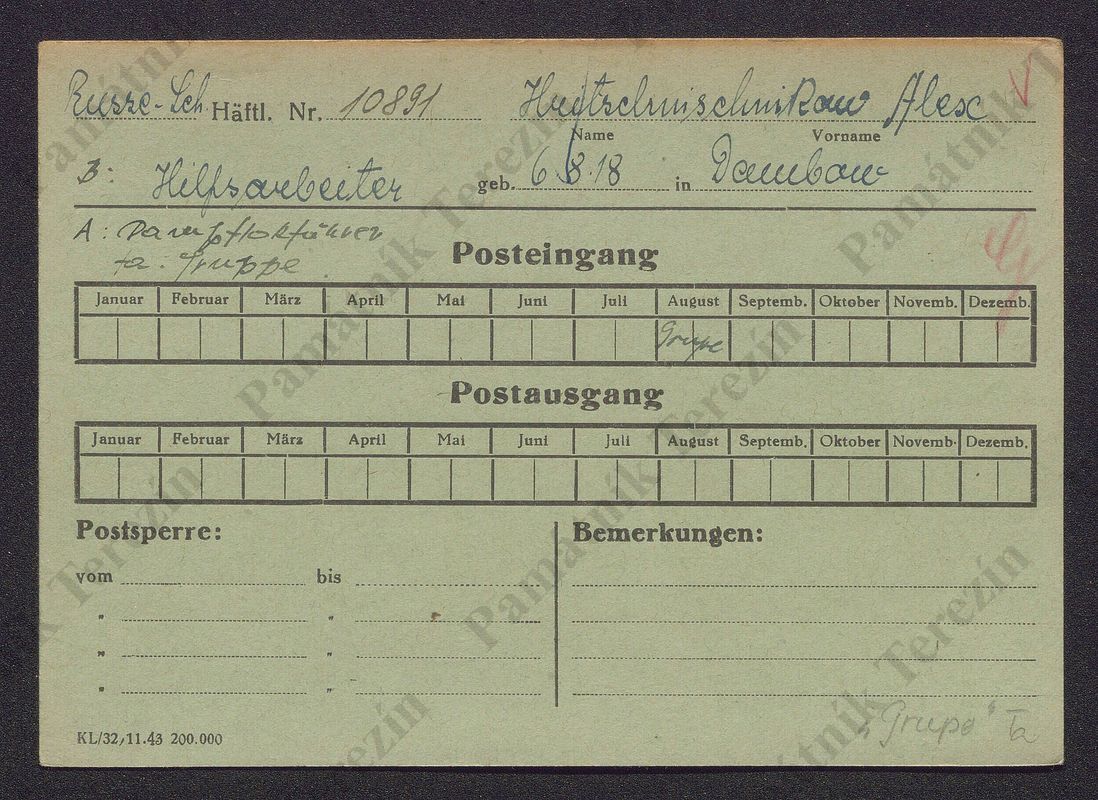 Russe-Sch. Häftl. Nr. 10891 Alex
Name Vorname
B: Hilfsarbeiter geb. 6.8.18 in Dambow
A: Dampflokführer
ta. Gruppe
Posteingang
Januar Februar März April Mai Juni Juli August Septemb. Oktober Novemb. Dezemb.
Grupe
Postausgang
Januar Februar März April Mai Juni Juli August Septemb. Oktober Novemb. Dezemb.
Postsperre: Bemerkungen:
vom bis
" "
" "
" "
"Grupe" Ta
KL/32, 11.43 200.000
Památník Terezín